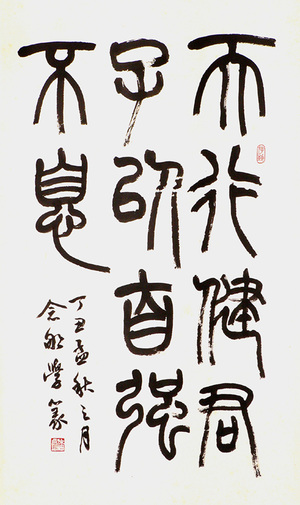 天行健君
子以自强
不息
丁丑孟秋之月
念 學篆